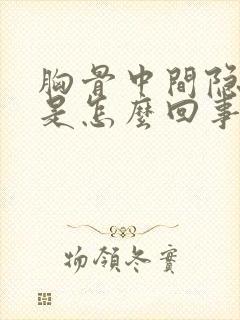 胸骨中間隐
是怎麼回事
物領冬實